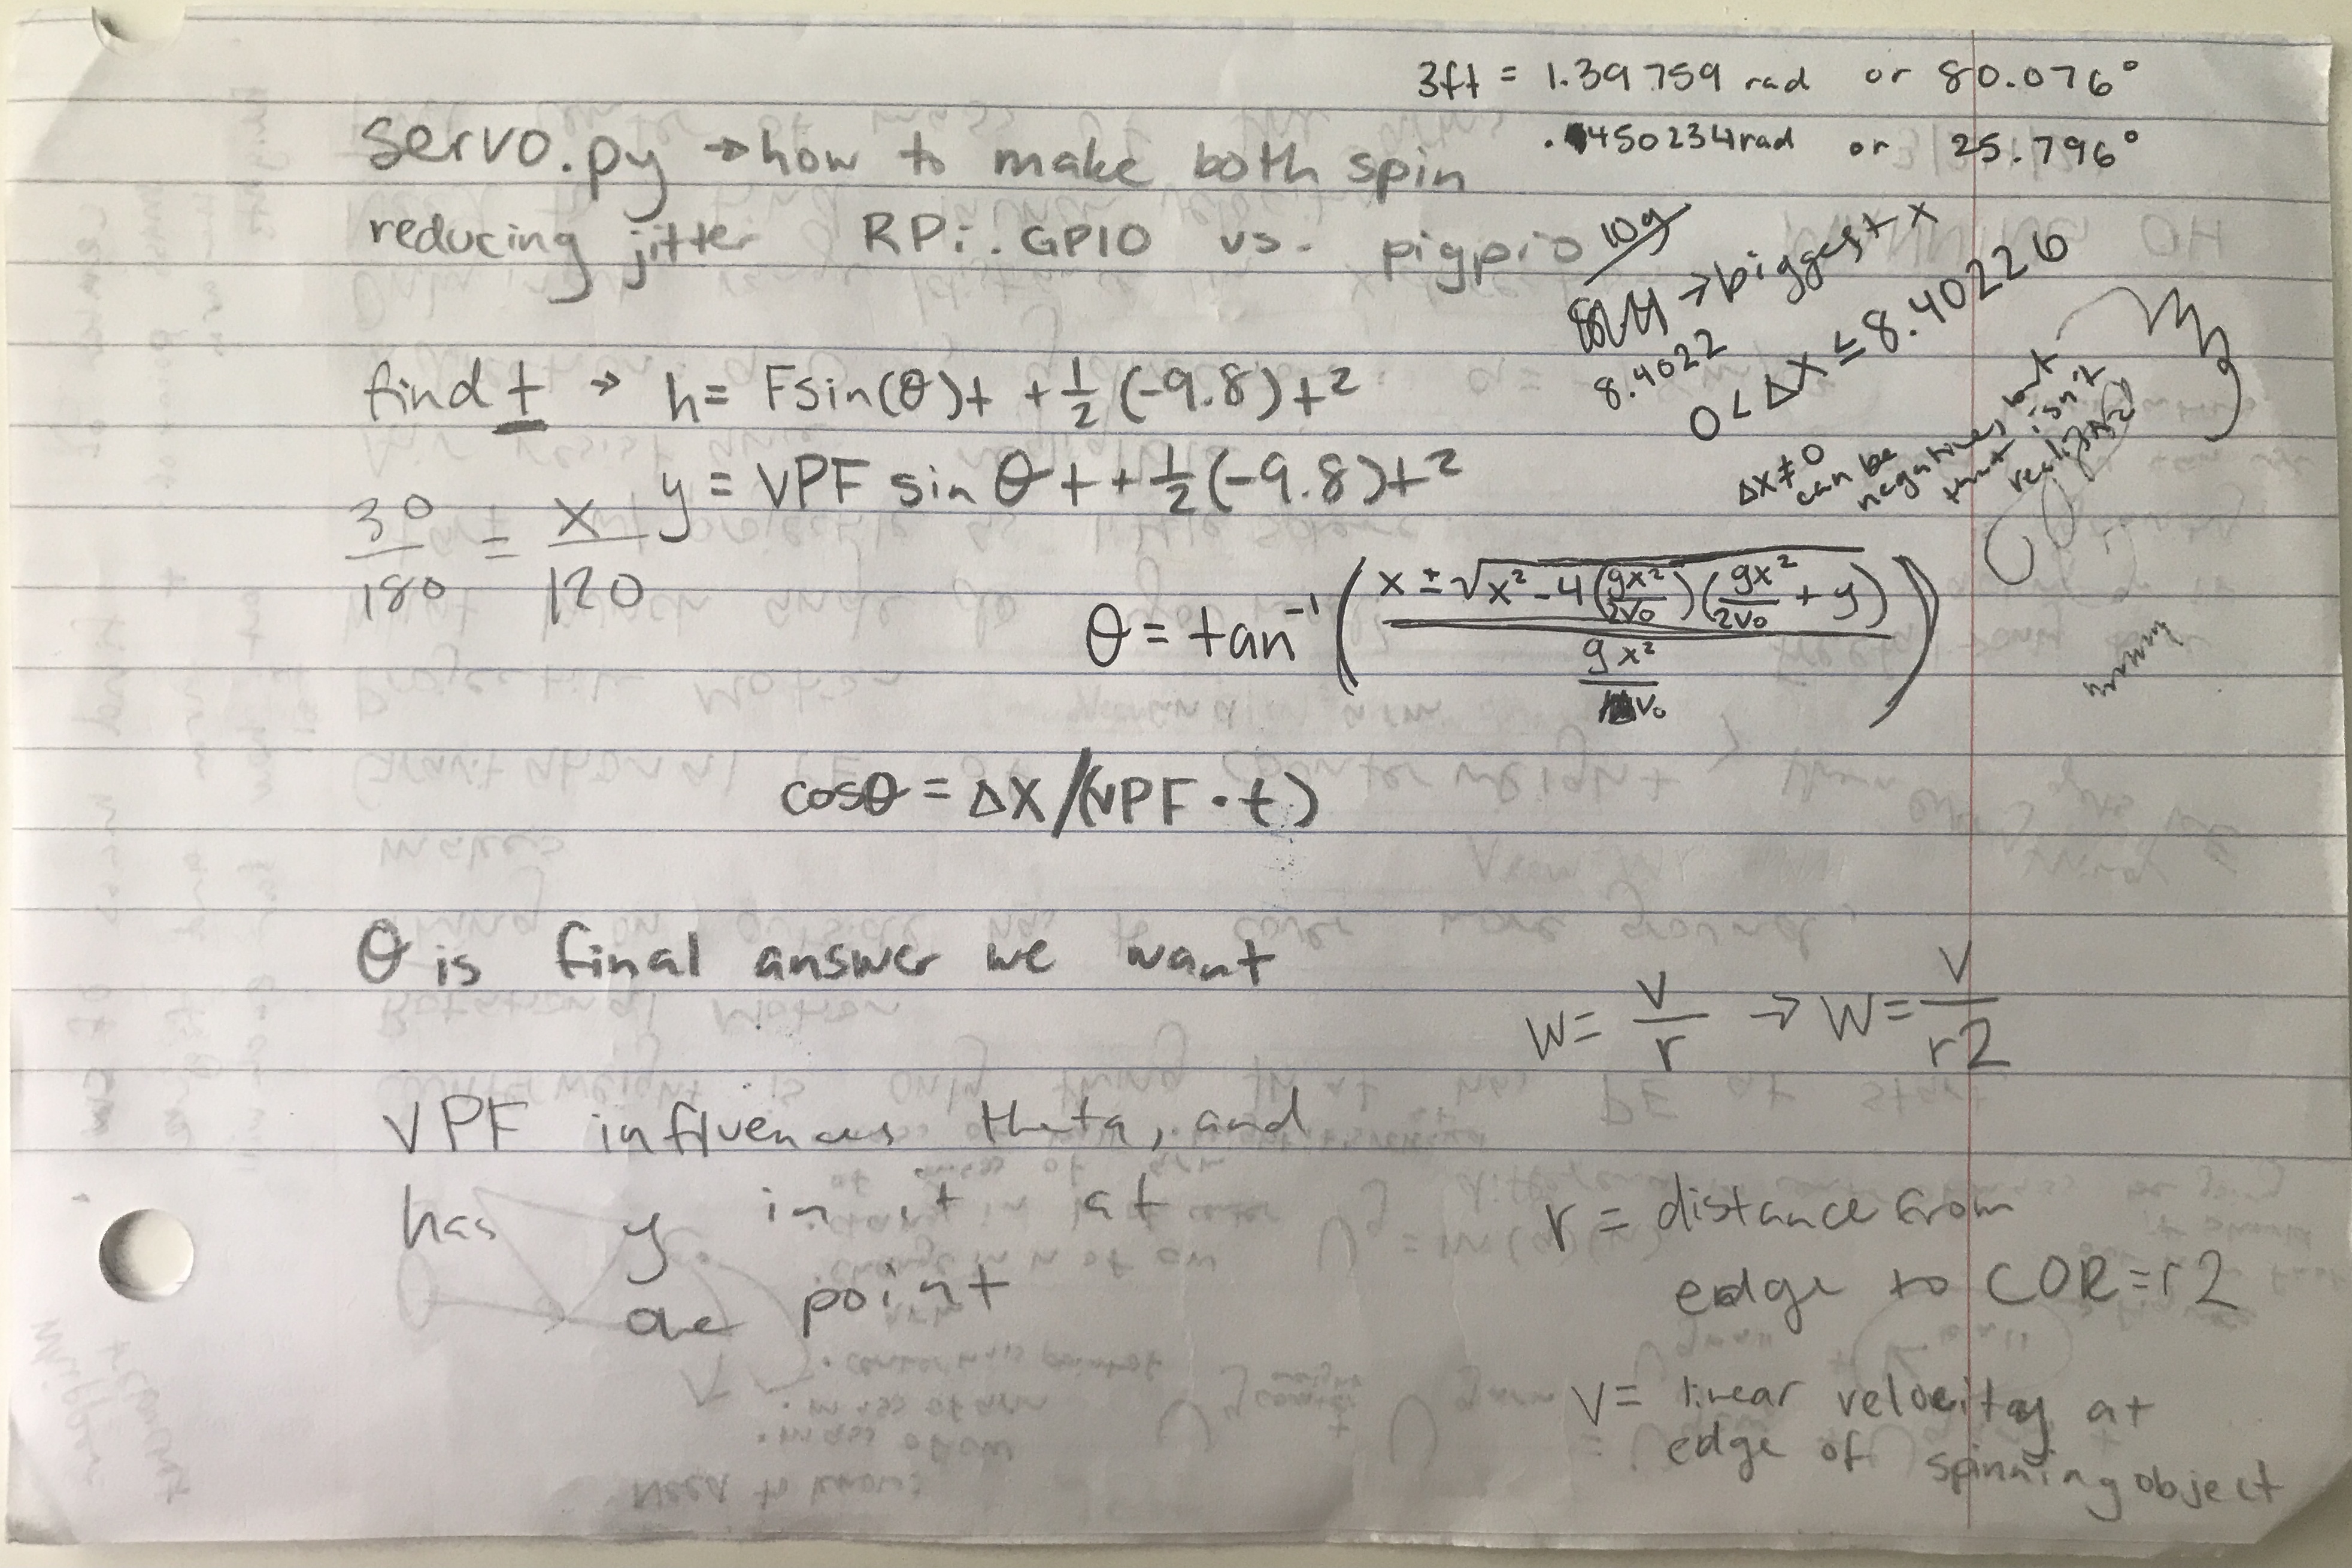 3ft = 1.39759 rad or 80.076°
.450234rad or 25.796°
servo.py → how to make both spin
reducing jitter RPi.GPIO vs. pigpio
→ biggest x
8.4022
0 < Δx ≤ 8.40226
Δx ≠ 0
can be
negative, but
that isn't
realistic
find t → h = Fsin(θ)t + 1/2 (-9.8)t²
y = VPF sin θ t + 1/2 (-9.8)t²
30/180 = x/120
θ = tan⁻¹((x ± √(x² - 4(gx²/2v₀)(gx²/2v₀ + y))) / (gx²/v₀))
cosθ = Δx/(VPF · t)
θ is final answer we want
W = V/r → W = V/r2
VPF influences theta, and
has y in it at
one point
r = distance from
edge to COR = r2
V = linear velocity at
edge of spinning object